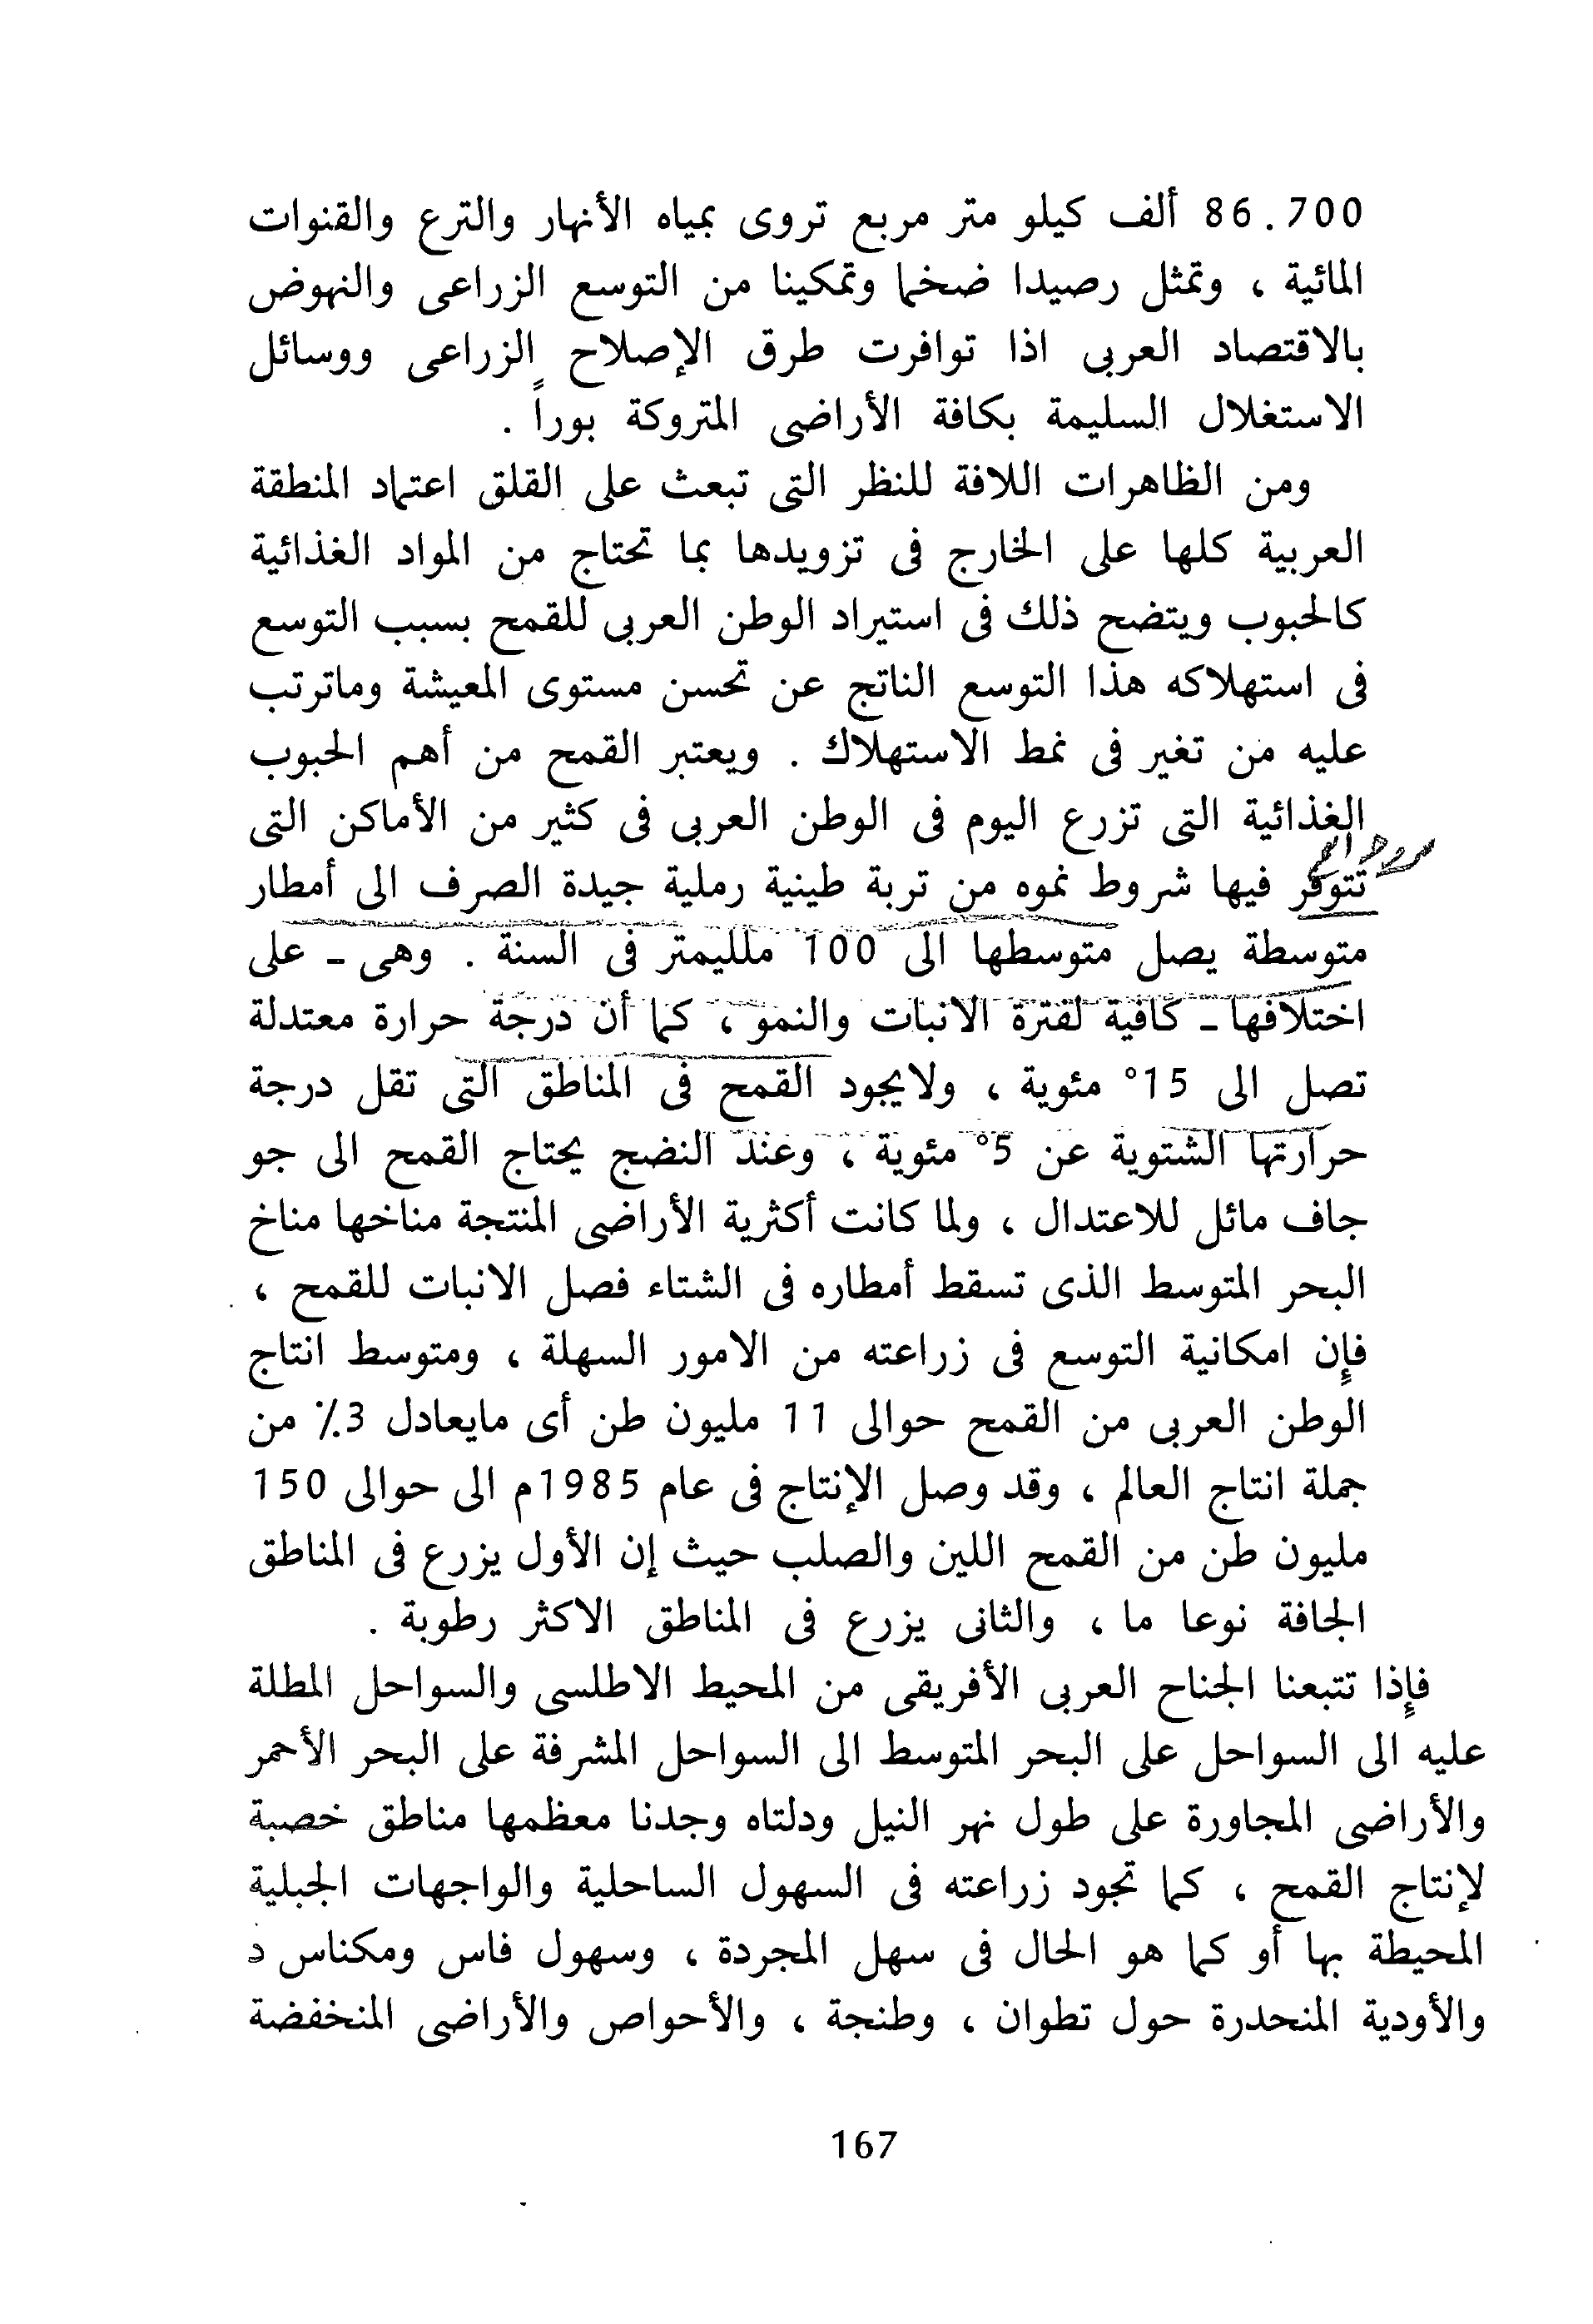 86.700 ألف كيلو متر مربع تروى بمياه الأنهار والترع والقنوات
المائية ، وتمثل رصيدا ضخما وتمكينا من التوسع الزراعى والنهوض
بالاقتصاد العربى اذا توافرت طرق الإصلاح الزراعى ووسائل
الاستغلال السليمة بكافة الأراضى المتروكة بوراً .
ومن الظاهرات اللافة للنظر التى تبعث على القلق اعتماد المنطقة
العربية كلها على الخارج فى تزويدها بما تحتاج من المواد الغذائية
كالحبوب ويتضح ذلك فى استيراد الوطن العربى للقمح بسبب التوسع
فى استهلاكه هذا التوسع الناتج عن تحسن مستوى المعيشة وماترتب
عليه من تغير فى نمط الاستهلاك . ويعتبر القمح من أهم الحبوب
الغذائية التى تزرع اليوم فى الوطن العربى فى كثير من الأماكن التى
تتوفر فيها شروط نموه من تربة طينية رملية جيدة الصرف الى أمطار
متوسطة يصل متوسطها الى 100 ملليمتر فى السنة . وهى ـ على
اختلافها ـ كافية لفترة الانبات والنمو ، كما أن درجة حرارة معتدلة
تصل الى 15° مئوية ، ولايجود القمح فى المناطق التى تقل درجة
حرارتها الشتوية عن 5° مئوية ، وعند النضج يحتاج القمح الى جو
جاف مائل للاعتدال ، ولما كانت أكثرية الأراضى المنتجة مناخها مناخ
البحر المتوسط الذى تسقط أمطاره فى الشتاء فصل الانبات للقمح ،
فإن امكانية التوسع فى زراعته من الامور السهلة ، ومتوسط انتاج
الوطن العربى من القمح حوالى 11 مليون طن أى مايعادل 3٪ من
جملة انتاج العالم ، وقد وصل الإنتاج فى عام 1985م الى حوالى 150
مليون طن من القمح اللين والصلب حيث إن الأول يزرع فى المناطق
الجافة نوعا ما ، والثانى يزرع فى المناطق الاكثر رطوبة .
فإذا تتبعنا الجناح العربى الأفريقى من المحيط الاطلسى والسواحل المطلة
عليه الى السواحل على البحر المتوسط الى السواحل المشرفة على البحر الأحمر
والأراضى المجاورة على طول نهر النيل ودلتاه وجدنا معظمها مناطق خصبة
لإنتاج القمح ، كما تجود زراعته فى السهول الساحلية والواجهات الجبلية
المحيطة بها أو كما هو الحال فى سهل المجردة ، وسهول فاس ومكناس د
والأودية المنحدرة حول تطوان ، وطنجة ، والأحواص والأراضى المنخفضة
167